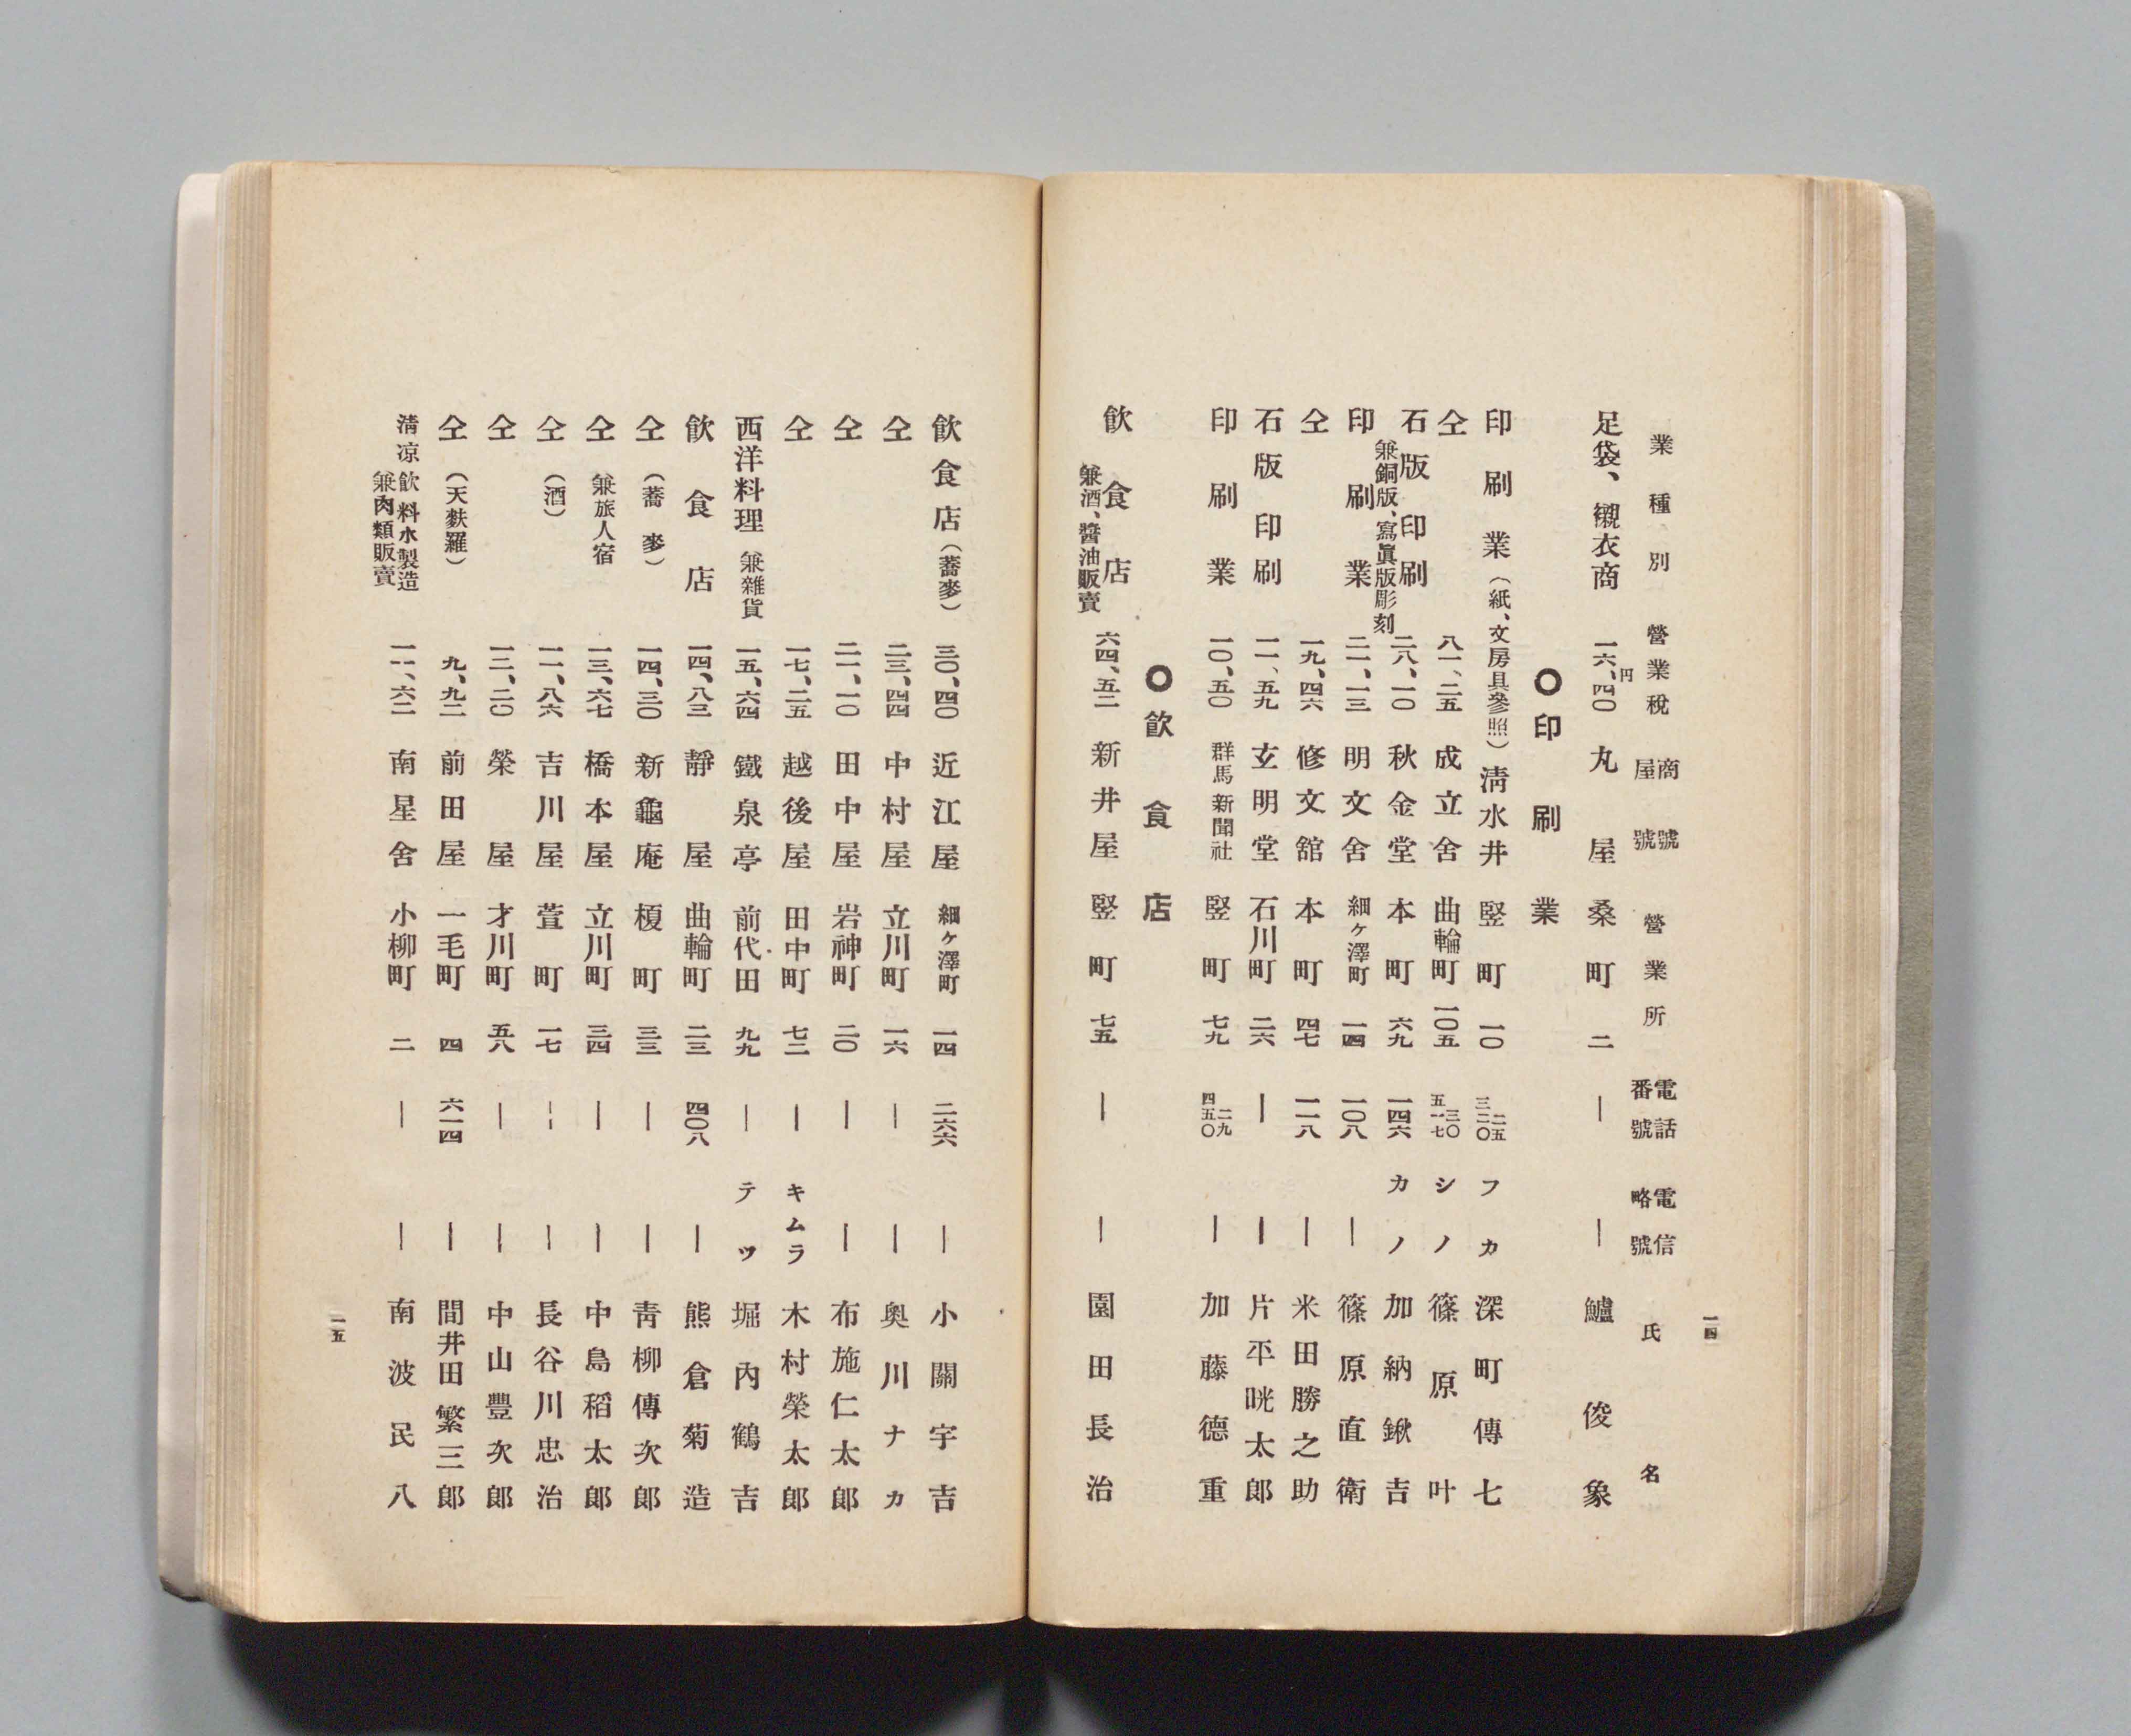 業種別　營業稅　商號屋號　營業所　電話番號　電信略號　氏名
足袋、襯衣商　一六、四〇円　丸屋　桑町　二　—　—　鱸俊象
〇印刷業
印刷業（紙、文房具參照）　淸水井　竪町　一〇　二五　三二〇　フカ　深町傳七
仝　八一、二五　成立舍　曲輪町　一〇五　三〇　五一七　シノ　篠原叶
石版印刷　兼銅版、寫眞版彫刻　二八、一〇　秋金堂　本町　六九　一四六　カノ　加納鍬吉
印刷業　二一、一三　明文舍　細ヶ澤町　一四　一〇八　—　篠原直衛
仝　一九、四六　修文舘　本町　四七　一一八　—　米田勝之助
石版印刷　一一、五九　玄明堂　石川町　二六　—　—　片平晄太郎
印刷業　一〇、五〇　群馬新聞社　竪町　七九　二九　四五〇　—　加藤德重
〇飮食店
飮食店　兼酒、醬油販賣　六四、五二　新井屋　竪町　七五　—　—　園田長治
一四
飮食店（蕎麥）　三〇、四〇　近江屋　細ヶ澤町　一四　二六六　—　小關宇吉
仝　二三、四四　中村屋　立川町　一六　—　—　奥川ナカ
仝　二一、一〇　田中屋　岩神町　二〇　—　—　布施仁太郎
仝　一七、二五　越後屋　田中町　七二　—　キムラ　木村榮太郎
西洋料理　兼雜貨　一五、六四　鐵泉亭　前代田　九九　—　テツ　堀內鶴吉
飮食店　一四、八三　靜屋　曲輪町　二三　四〇八　—　熊倉菊造
仝（蕎麥）　一四、三〇　新龜庵　榎町　三三　—　—　靑柳傳次郎
仝　兼旅人宿　一三、六七　橋本屋　立川町　三四　—　—　中島稻太郎
仝（酒）　一一、八六　吉川屋　萱町　一七　—　—　長谷川忠治
仝　一二、二〇　榮屋　才川町　五八　—　—　中山豐次郎
仝（天麩羅）　九、九二　前田屋　一毛町　四　六一四　—　間井田繁三郎
淸凉飮料水製造　兼肉類販賣　一一、六二　南星舍　小柳町　二　—　—　南波民八
一五